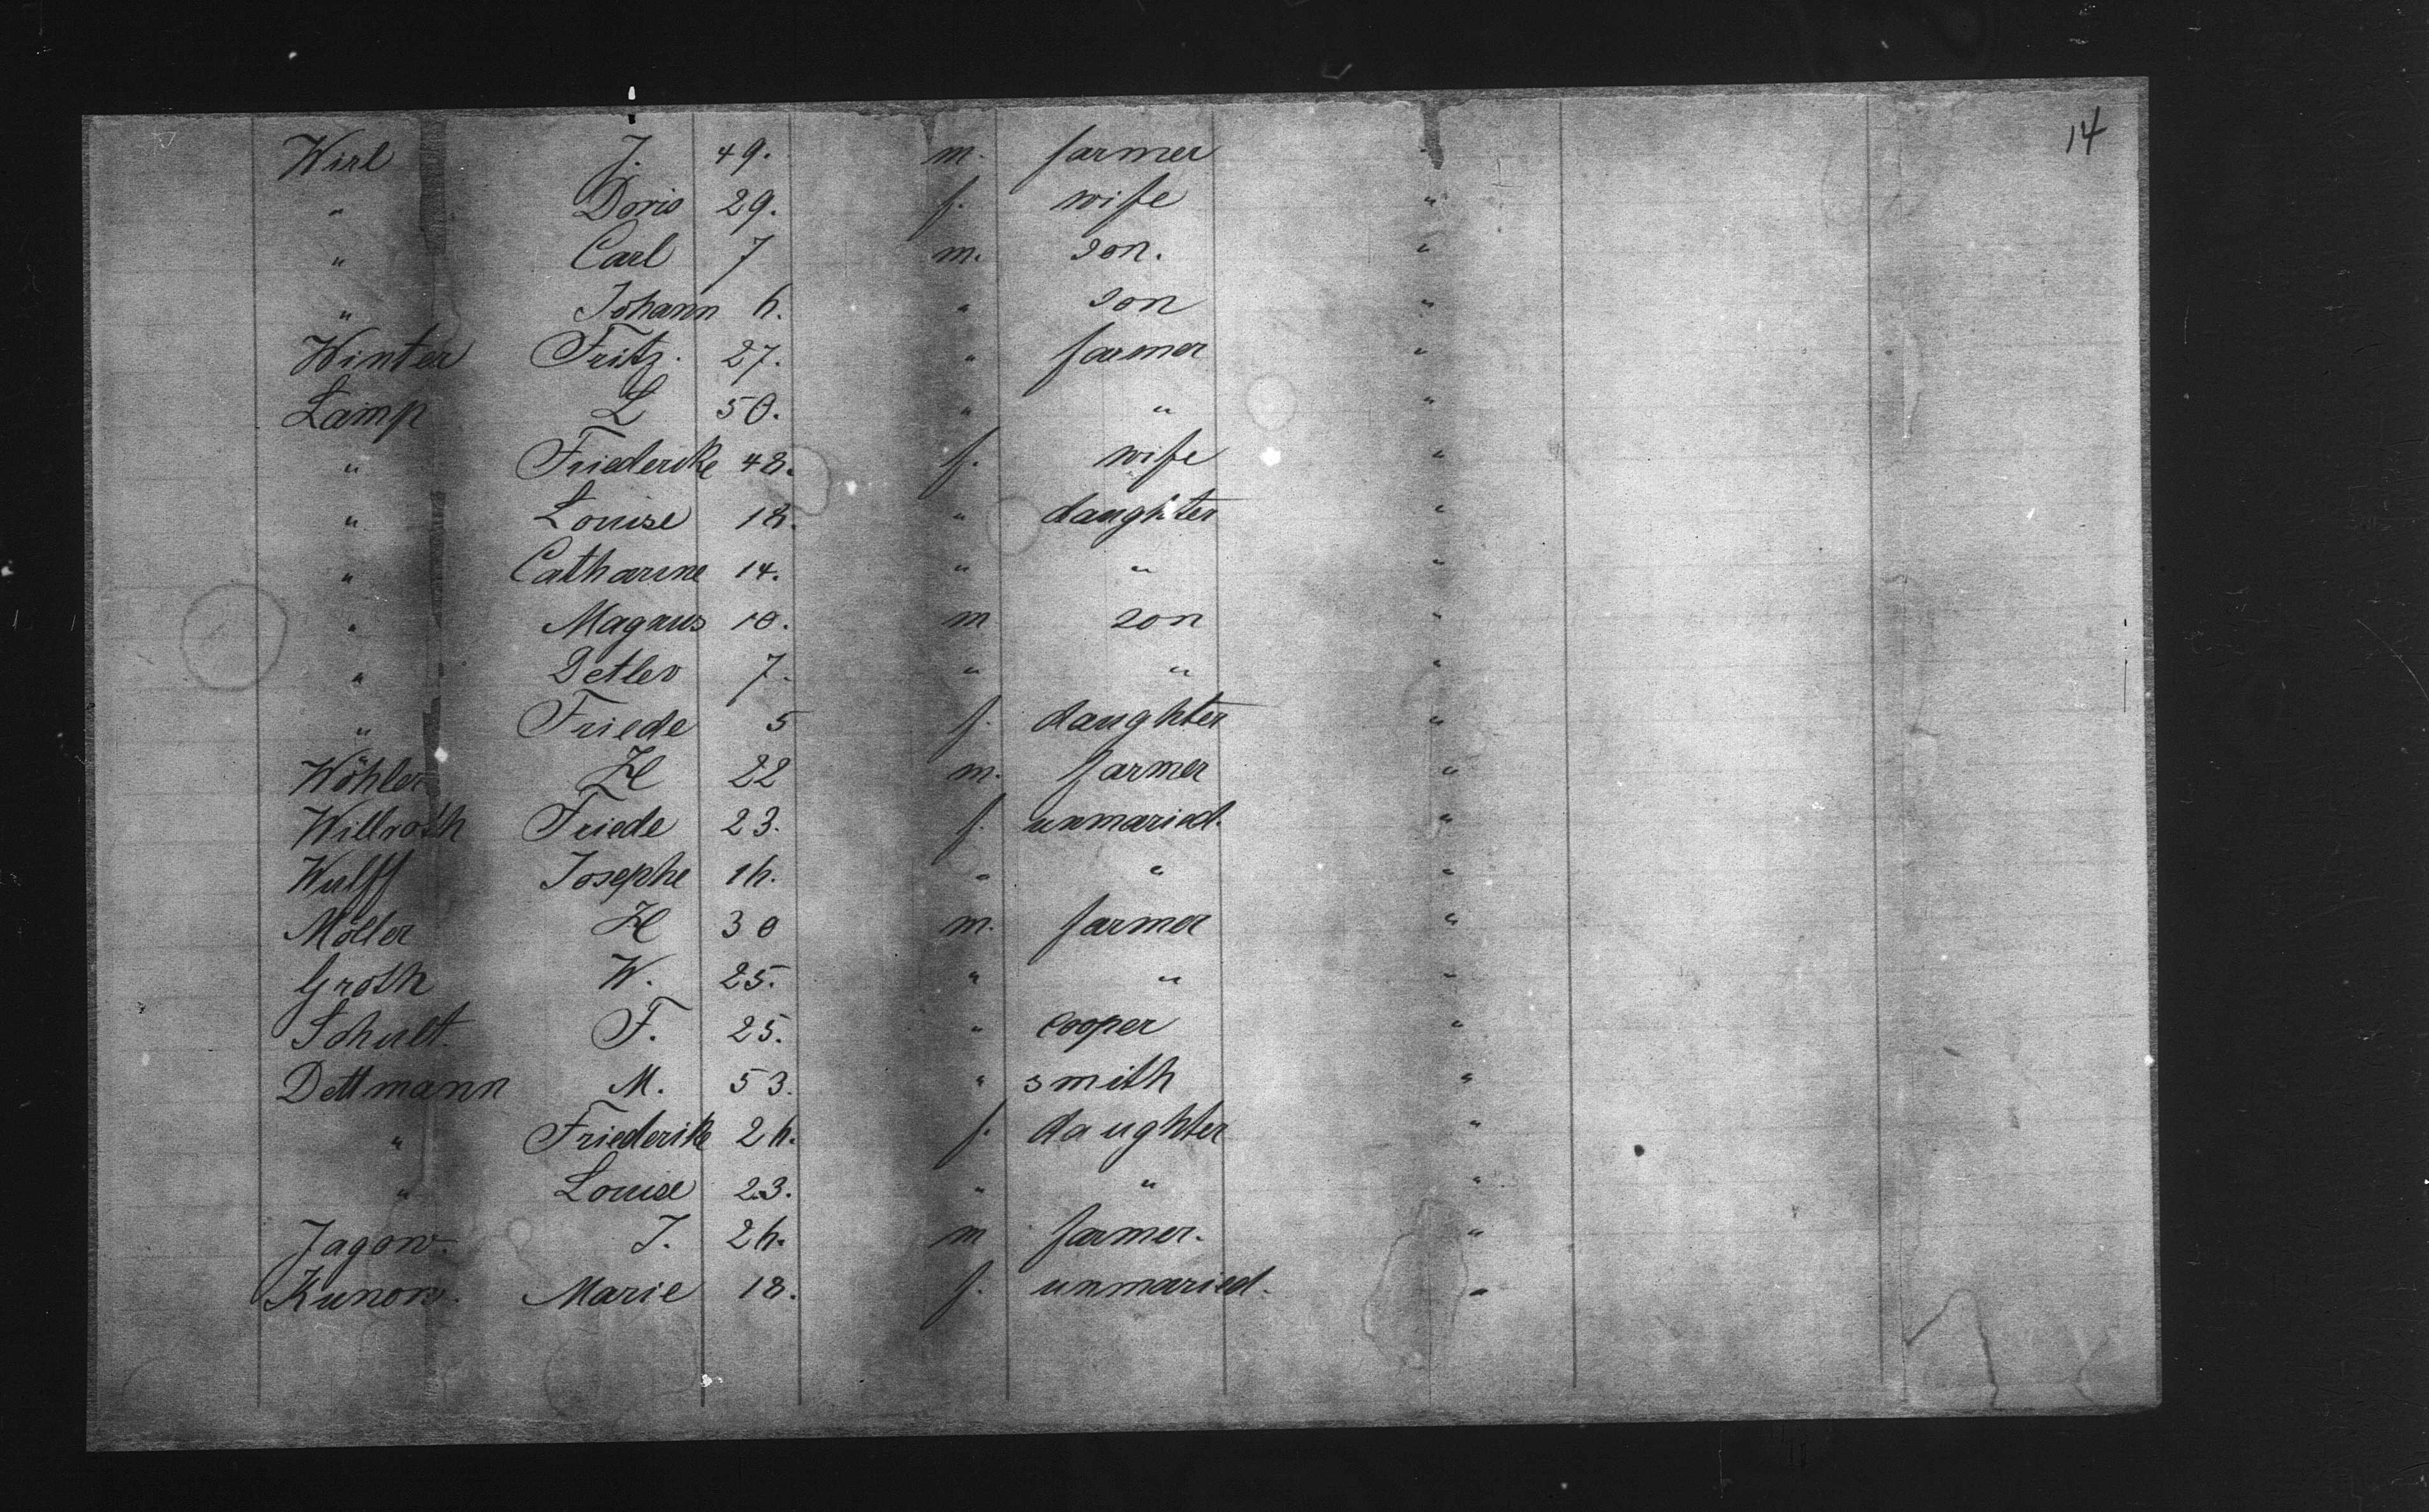 14
Wirl J. 49. m. farmer
" Doris 29. f. wife "
" Carl 7 m. son. "
" Johann 6. " son "
Winter Fritz. 27. " farmer "
Lamp L 50. " " "
" Friederike 48. f. wife "
" Louise 18. " daughter "
" Catharine 14. " " "
" Magnus 10. m son "
" Detlev 7. " " "
" Friede 5 f. daughter "
Wöhler H 22 m. farmer "
Willroth Friede 23. f. unmaried. "
Wulff Josephe 16. " " "
Möller H 30 m. farmer "
Groth W. 25. " " "
Schult. F. 25. " cooper "
Dettmann M. 53. " smith "
" Friederike 26. f. daughter "
" Louise 23. " " "
Jagow. J. 26. m farmer. "
Kunow. Marie 18. f. unmaried. "